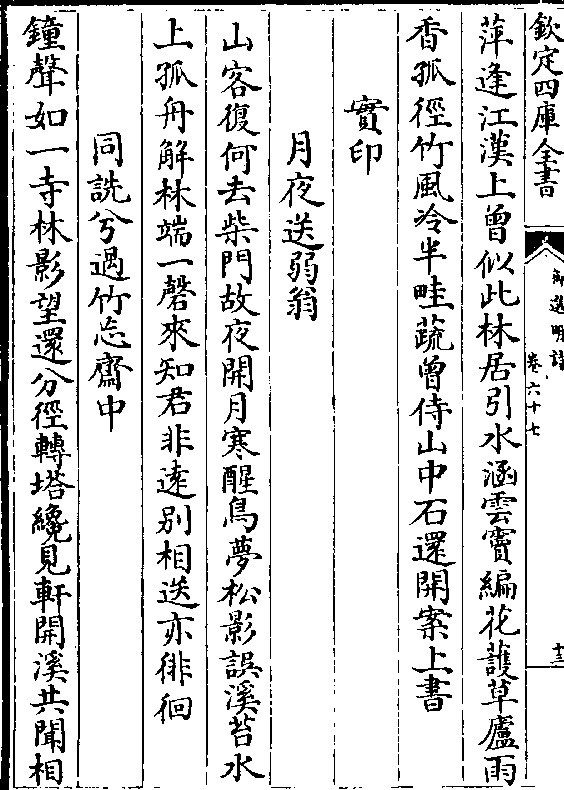 欽定四庫全書
御選明詩
卷六十七
十三
萍逢江漢上曾似此林居引水涵雲竇編花護草廬雨
香孤徑竹風冷半畦蔬曾侍山中石還開案上書
實印
月夜送弱翁
山客復何去柴門故夜開月寒醒鳥夢松影誤溪苔水
上孤舟解林端一磬來知君非遠別相送亦徘徊
同詵兮過竹忘齋中
鐘聲如一寺林影望還分徑轉塔纔見軒開溪共聞相